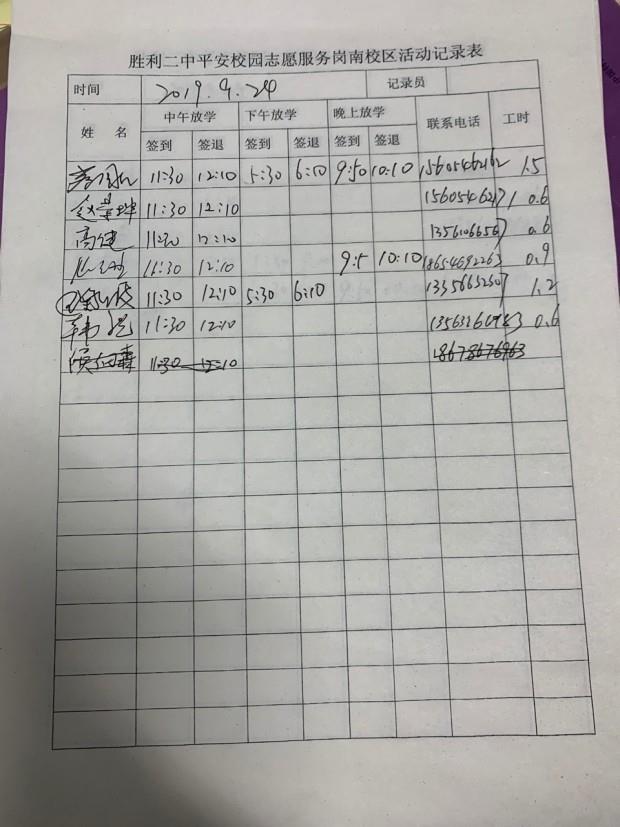 胜利二中平安校园志愿服务岗南校区活动记录表
时间 2019.9.24 记录员
姓名 中午放学 下午放学 晚上放学 联系电话 工时
签到 签退 签到 签退 签到 签退
11:30 12:10 5:30 6:10 9:50 10:10 15605462162 1.5
赵景坤 11:30 12:10 15605462171 0.6
高建 11:30 12:10 13561066567 0.6
11:30 12:10 10:10 18654692263 0.9
11:30 12:10 5:30 6:10 1.2
韩 11:30 12:10 0.6
11:30 12:10 18678676963